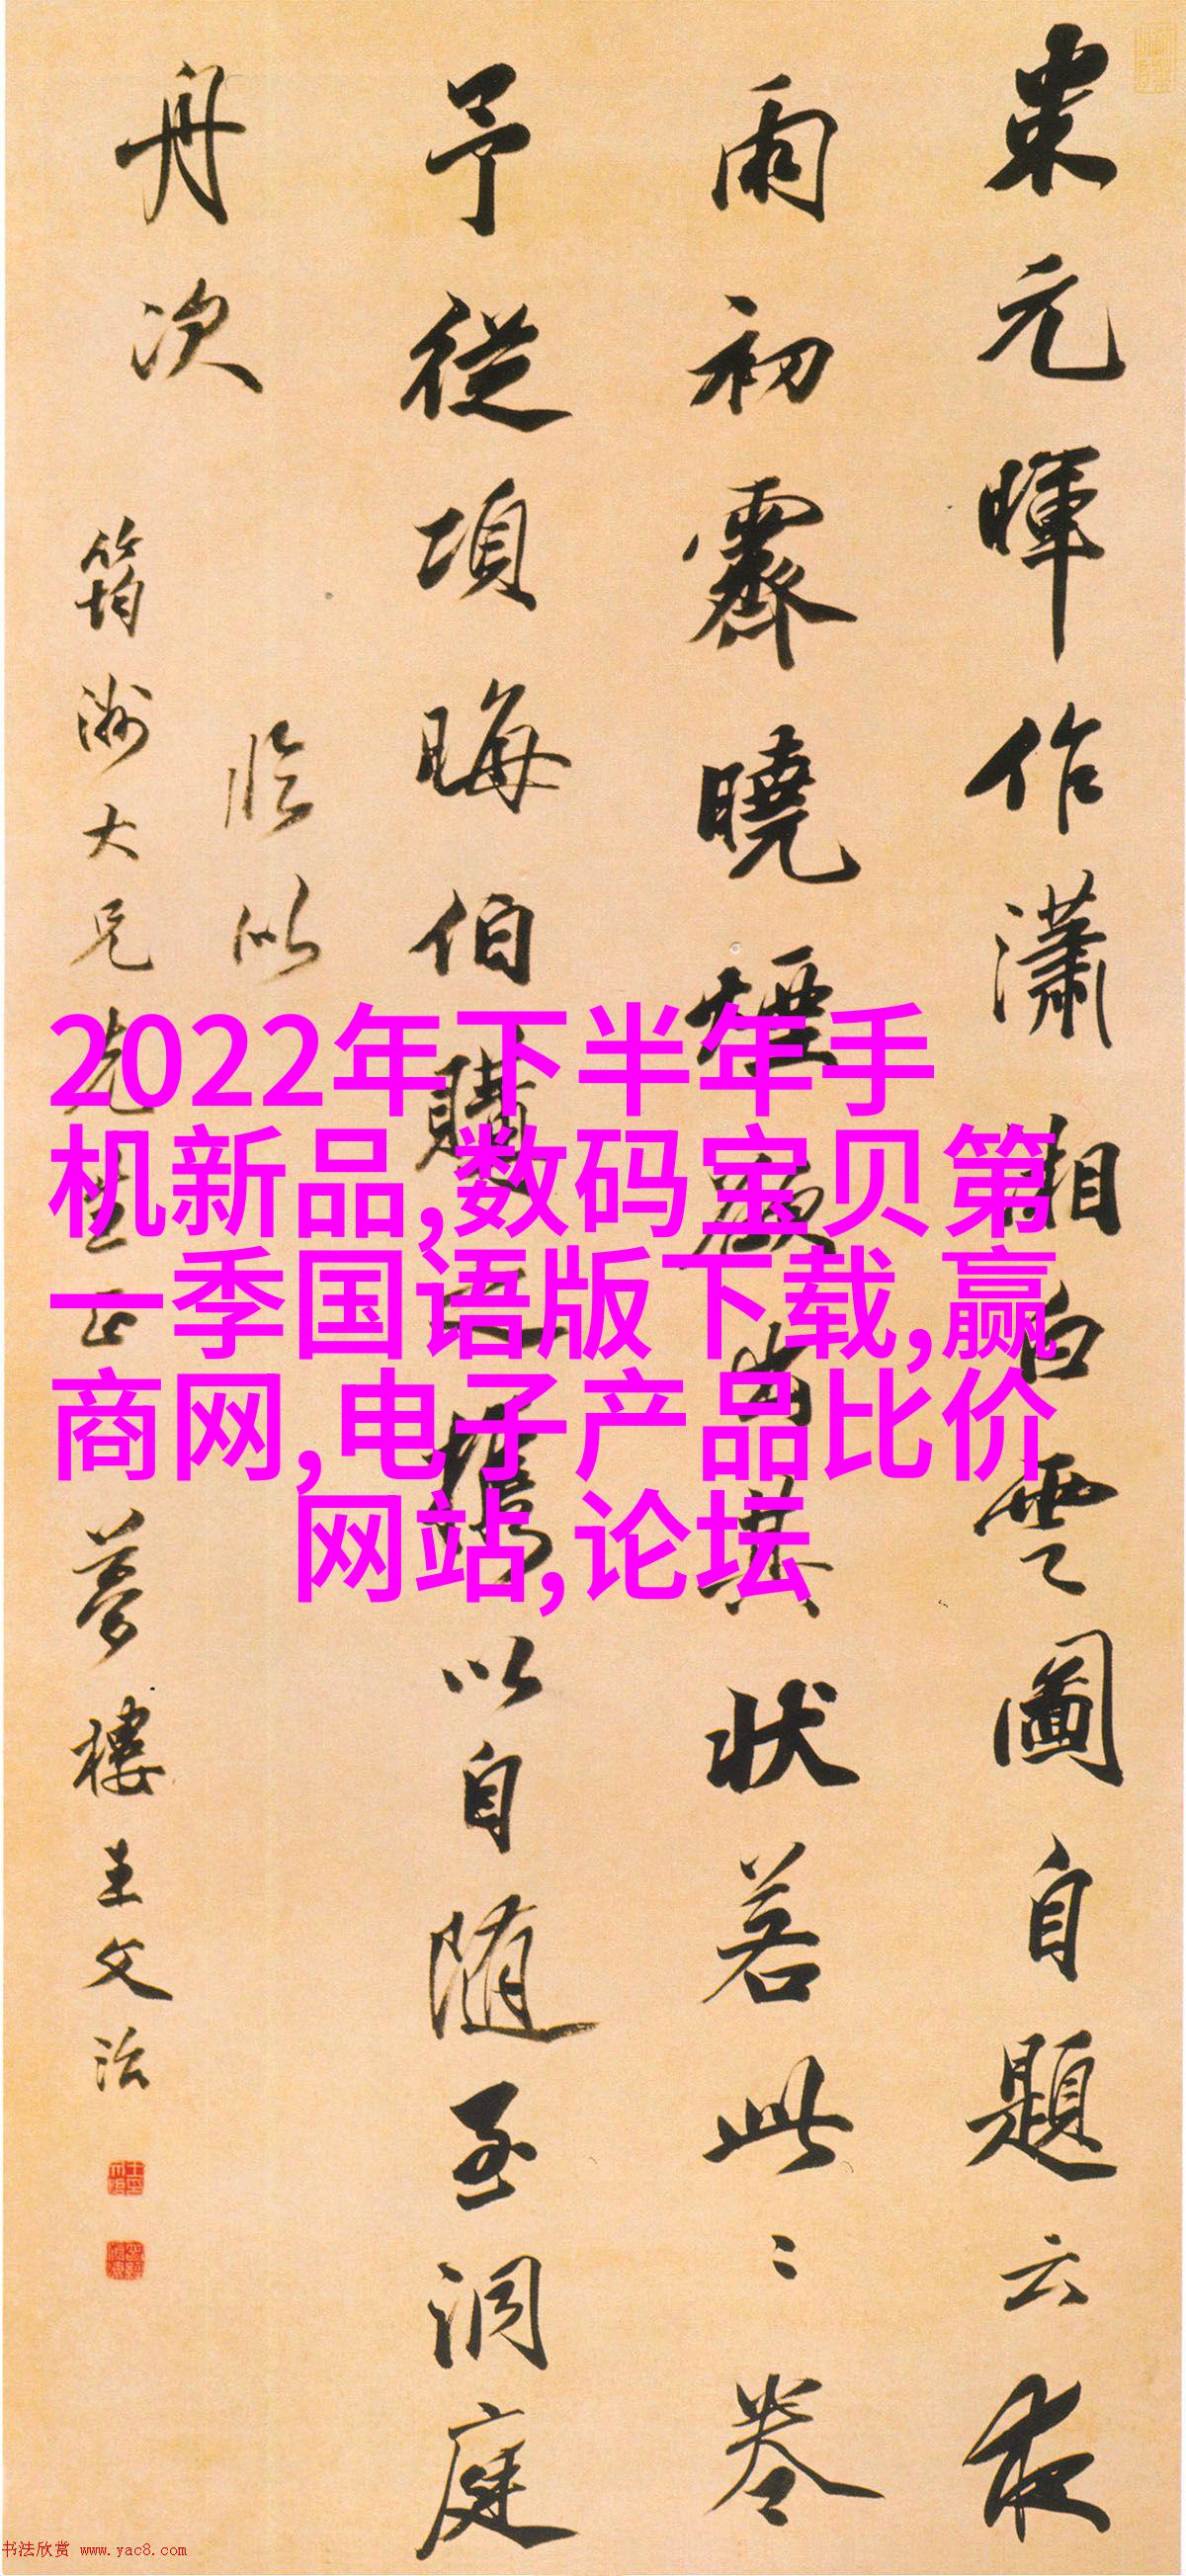 米元暉作瀟湘白雲圖自題云夜
雨初霽曉煙欲出其狀若此此卷
予從項晦伯購之携以自随至洞庭
舟次
臨似
筠洲大兄先生正 夢樓王文治
2022年下半年手
机新品,数码宝贝第
一季国语版下载,赢
商网,电子产品比价
网站,论坛
书法欣赏 www.yac8.com